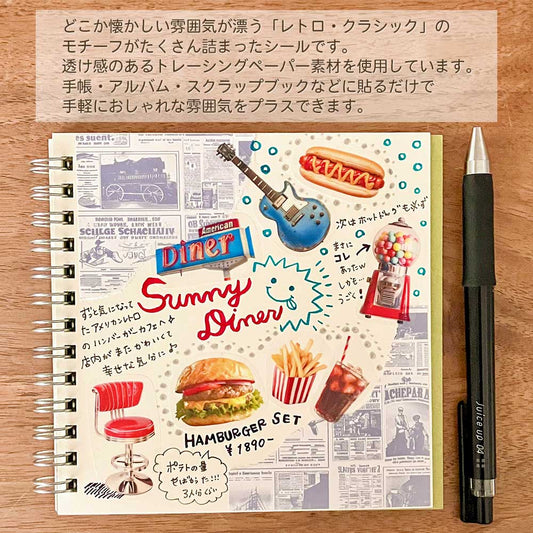 どこか懐かしい雰囲気が漂う「レトロ・クラシック」の
モチーフがたくさん詰まったシールです。
透け感のあるトレーシングペーパー素材を使用しています。
手帳・アルバム・スクラップブックなどに貼るだけで
手軽におしゃれな雰囲気をプラスできます。
American
Diner
次はホットドッグも必ず
まさに
コレ
あったw
しかも…
うごく!
Sunny
Diner
ずっと気になって
たアメリカンレトロ
のハンバーガーカフェへ♪
店内がまたかわいくて
幸せな気分に♪
HAMBURGER SET
¥1890-
ポテトの量
せばらた!!!
3人分くらい
Juice up 04